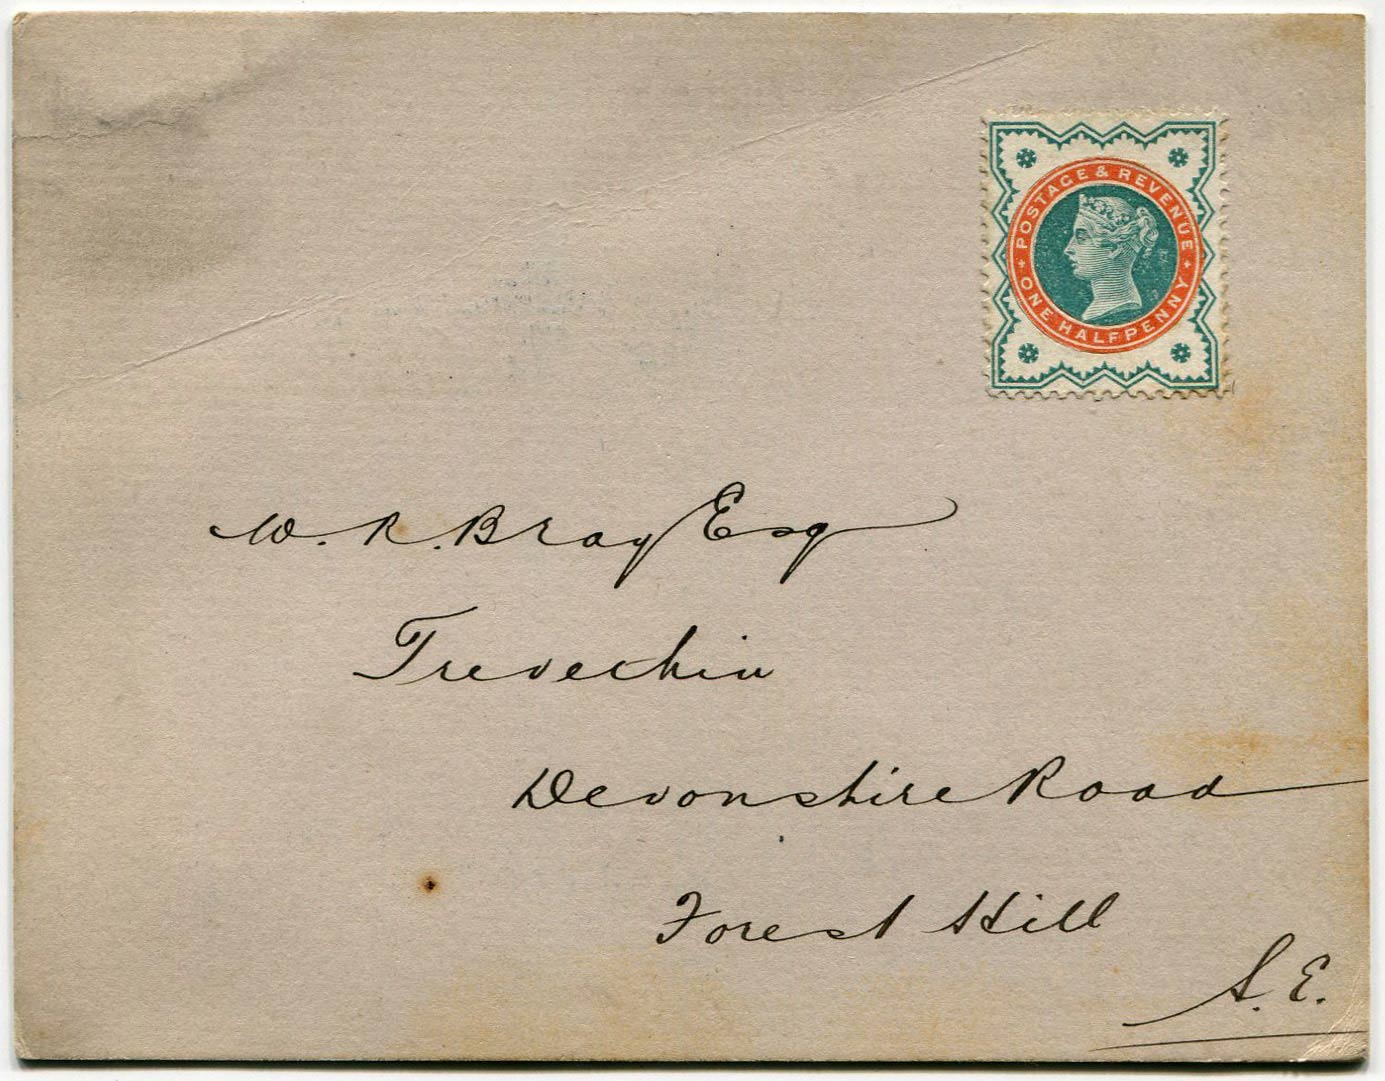 POSTAGE & REVENUE
ONE HALFPENNY
W. R. Bray Esq
Trevechin
Devonshire Road
Forest Hill
S.E.